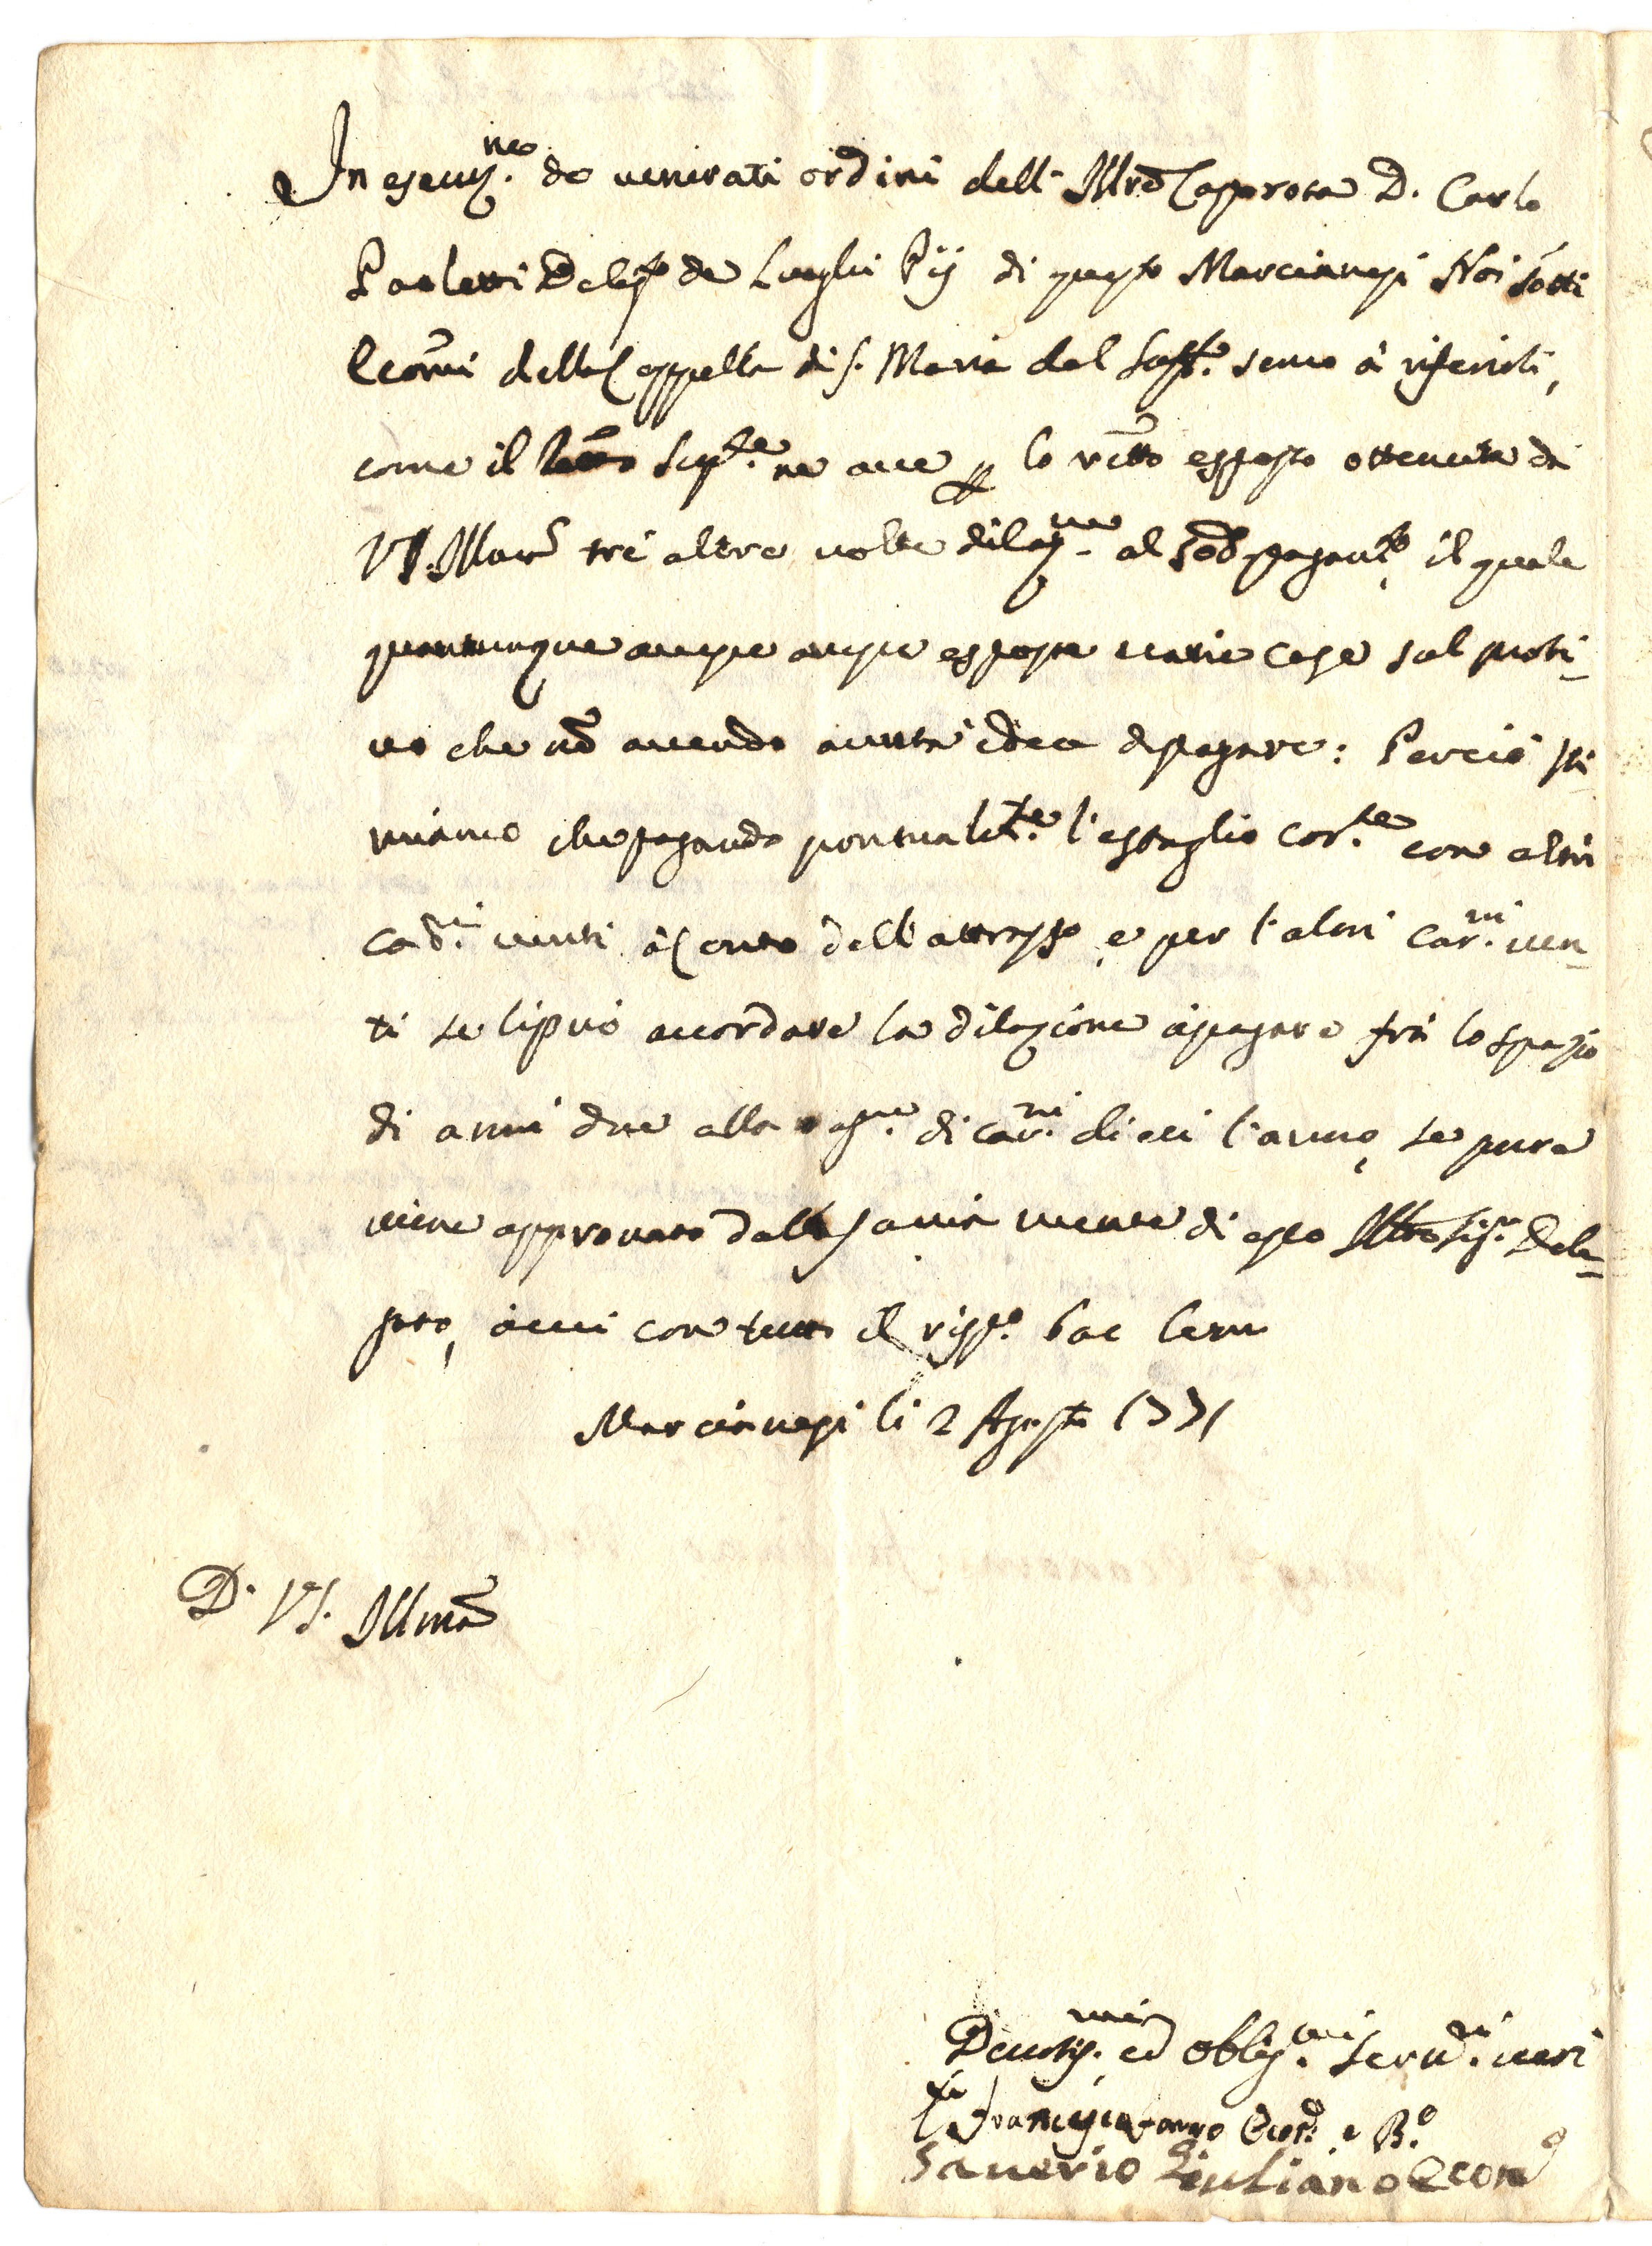 In esecuz.ne de venerati ordini dell' Ill.re Caporota D. Carlo
Paoletti Deleg.to de Luoghi Pij di questo Marcianesi Noi sotti
Econ.mi della Cappella di S. Maria del semo à riferirli,
come il ne ave lo r.tto esposto ottenuta da
V.S. Ill.ma tre altre volte dilaz.ne al sod.o pagam.to, il quale
quantunque avesse esposte varie cose sul moti-
vo che nõ avendo avuta idea di pagare: Perciò sti
miamo che pagando pontualm.te l'estaglio cor.te con altri
car.ni venti à Conto dell'attrasso, e per l'altri car.ni ven-
ti se li può accordare la dilazione à pagare frà lo spazio
di anni due alla rag.ne di car.ni dieci l'anno, se pure
viene approvato dalla savia mente di esso Ill.tre Sig.r Dele-
gato, à cui con tutto il risp.o
Marcianesi li 2 Agosto 1771
D. V.S. Ill.ma
Devotis.mi ed oblig.mi serv.ri veri
Francesco Econ.o e B.o
Saverio Giuliano Econ.o